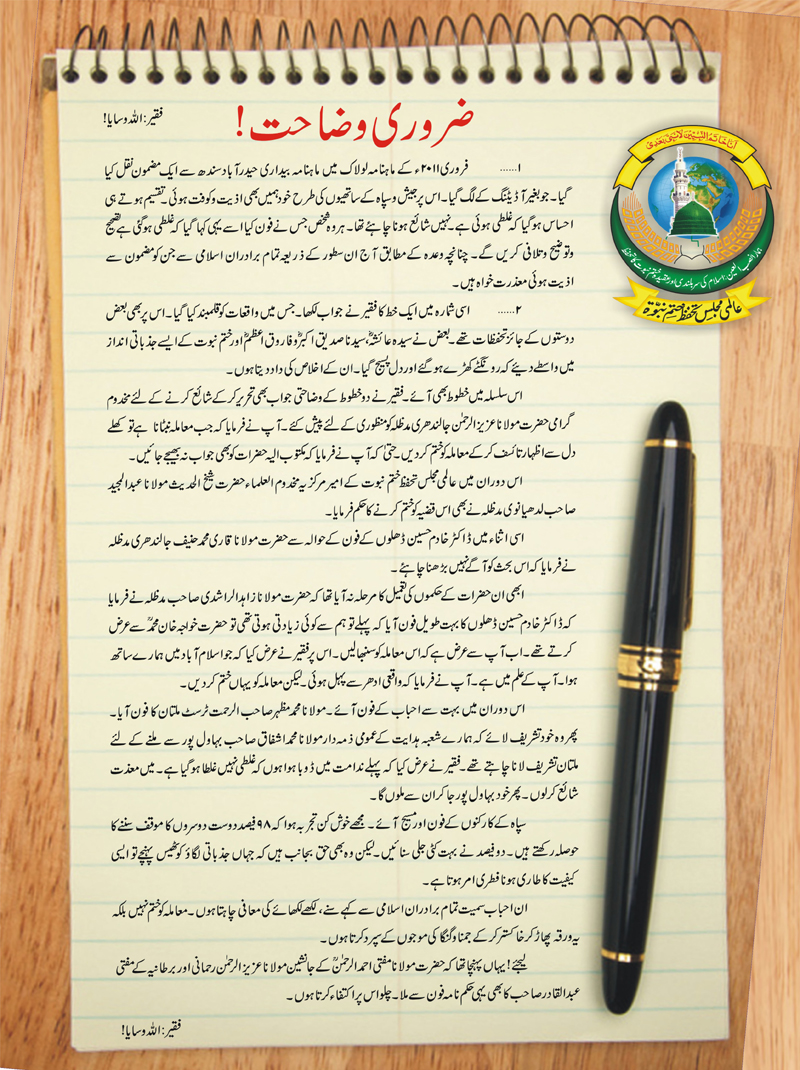 ضروری وضاحت!
فقیر: اللہ وسایا!
۱...... فروری ۲۰۱۱ء کے ماہنامہ لولاک میں ماہنامہ بیداری حیدر آباد سندھ سے ایک مضمون نقل کیا
گیا۔ جو بغیر آڈیٹنگ کے لگ گیا۔ اس پر جیش وسپاہ کے ساتھیوں کی طرح خود ہمیں بھی اذیت وکوفت ہوئی۔ تقسیم ہوتے ہی
احساس ہوگیا کہ غلطی ہوئی ہے۔ نہیں شائع ہونا چاہئے تھا۔ ہر وہ شخص جس نے فون کیا اسے یہی کہا گیا کہ غلطی ہوگئی ہے تصحیح
وتوضیح وتلافی کریں گے۔ چنانچہ وعدہ کے مطابق آج ان سطور کے ذریعہ تمام برادران اسلامی سے جن کو مضمون سے
اذیت ہوئی معذرت خواہ ہیں۔
۲...... اسی شمارہ میں ایک خط کا فقیر نے جواب لکھا۔ جس میں واقعات کو قلمبند کیا گیا۔ اس پر بھی بعض
دوستوں کے جائز تحفظات تھے۔ بعض نے سیدہ عائشہؓ، سیدنا صدیق اکبرؓ وفاروق اعظمؓ اور ختم نبوت کے ایسے جذباتی انداز
میں واسطے دیئے کہ رونگٹے کھڑے ہوگئے اور دل پسیج گیا۔ ان کے اخلاص کی داد دیتا ہوں۔
اس سلسلہ میں خطوط بھی آئے۔ فقیر نے دو خطوط کے وضاحتی جواب بھی تحریر کر کے شائع کرنے کے لئے مخدوم
گرامی حضرت مولانا عزیز الرحمٰن جالندھری مدظلہ کو منظوری کے لئے پیش کئے۔ آپ نے فرمایا کہ جب معاملہ نبٹانا ہے تو کھلے
دل سے اظہار تاسف کر کے معاملہ کو ختم کر دیں۔ حتیٰ کہ آپ نے فرمایا کہ مکتوب الیہ حضرات کو بھی جواب نہ بھیجے جائیں۔
اس دوران میں عالمی مجلس تحفظ ختم نبوت کے امیر مرکزیہ مخدوم العلماء حضرت شیخ الحدیث مولانا عبدالمجید
صاحب لدھیانوی مدظلہ نے بھی اس قضیہ کو ختم کرنے کا حکم فرمایا۔
اسی اثناء میں ڈاکٹر خادم حسین ڈھلوں کے فون کے حوالہ سے حضرت مولانا قاری محمد حنیف جالندھری مدظلہ
نے فرمایا کہ اس بحث کو آگے نہیں بڑھنا چاہئے۔
ابھی ان حضرات کے حکموں کی تعمیل کا مرحلہ نہ آیا تھا کہ حضرت مولانا زاہد الراشدی صاحب مدظلہ نے فرمایا
کہ ڈاکٹر خادم حسین ڈھلوں کا بہت طویل فون آیا کہ پہلے تو ہم سے کوئی زیادتی ہوتی تھی تو حضرت خواجہ خان محمدؒ سے عرض
کرتے تھے۔ اب آپ سے عرض ہے کہ اس معاملہ کو سنبھالیں۔ اس پر فقیر نے عرض کیا کہ جو اسلام آباد میں ہمارے ساتھ
ہوا۔ آپ کے علم میں ہے۔ آپ نے فرمایا کہ واقعی ادھر سے پہل ہوئی۔ لیکن معاملہ کو یہاں ختم کر دیں۔
اس دوران میں بہت سے احباب کے فون آئے۔ مولانا محمد مظہر صاحب الرحمت ٹرسٹ ملتان کا فون آیا۔
پھر وہ خود تشریف لائے کہ ہمارے شعبہ ہدایت کے عمومی ذمہ دار مولانا محمد اشفاق صاحب بہاول پور سے ملنے کے لئے
ملتان تشریف لانا چاہتے تھے۔ فقیر نے عرض کیا کہ پہلے ندامت میں ڈوبا ہوا ہوں کہ غلطی نہیں غلطا ہوگیا ہے۔ میں معذت
شائع کرلوں۔ پھر خود بہاول پور جا کر ان سے ملوں گا۔
سپاہ کے کارکنوں کے فون اور میسج آئے۔ مجھے خوش کن تجربہ ہوا کہ ۹۸ فیصد دوست دوسروں کا موقف سننے کا
حوصلہ رکھتے ہیں۔ دو فیصد نے بہت کٹی جلی سنائیں۔ لیکن وہ بھی حق بجانب ہیں کہ جہاں جذباتی لگاؤ کو ٹھیس پہنچے تو ایسی
کیفیت کا طاری ہونا فطری امر ہوتا ہے۔
ان احباب سمیت تمام برادران اسلامی سے کہے سنے، لکھے لکھائے کی معافی چاہتا ہوں۔ معاملہ کو ختم نہیں بلکہ
یہ ورقہ پھاڑ کر خاکستر کر کے جمنا وگنگا کی موجوں کے سپرد کرتا ہوں۔
لیجئے! یہاں پہنچا تھا کہ حضرت مولانا مفتی احمد الرحمٰنؒ کے جانشین مولانا عزیز الرحمٰن رحمانی اور برطانیہ کے مفتی
عبدالقادر صاحب کا بھی یہی حکم نامہ فون سے ملا۔ چلو اس پر اکتفاء کرتا ہوں۔
فقیر: اللہ وسایا!
انا خاتم النبیین لا نبی بعدی
ہمارا نصب العین: اسلام کی سربلندی اور عقیدہ ختم نبوت کا تحفظ
عالمی مجلس تحفظ ختم نبوۃ